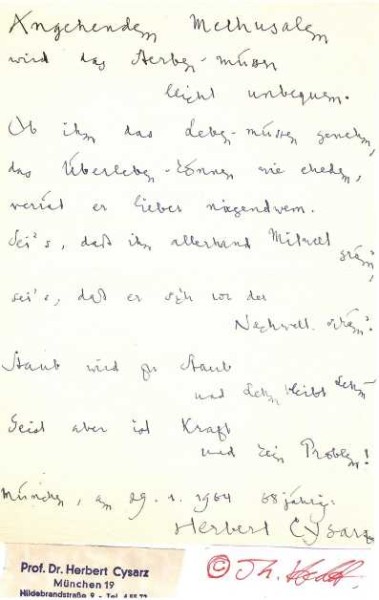 Angehendem Methusalem
wird das Sterben-müssen
leicht unbequem.
Ob ihm das Leben-müssen genehm,
das Überleben-können wie ehedem,
verrät er lieber nirgendwem.
Sei's, daß ihn allerhand Mitwelt gräm',
sei's, daß er sich vor der
Nachwelt schäm'.
Staub wird zu Staub
und Lehm bleibt Lehm
Geist aber ist Kraft
und kein Problem!
München, am 29. 1. 1964 68jährig
Herbert Cysarz
Prof. Dr. Herbert Cysarz
München 19
Hildebrandstraße 9 - Tel.
©